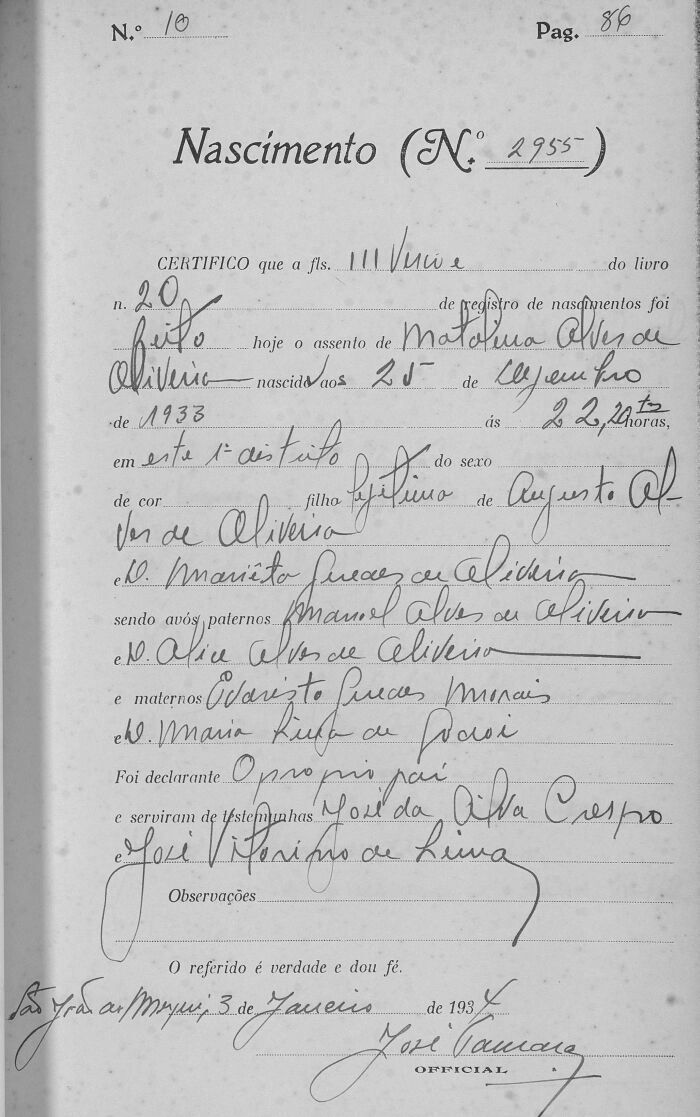 N.º 10 Pag. 86
Nascimento (N.º 2955)
CERTIFICO que a fls. 111 Verso e do livro
n. 20 de registro de nascimentos foi
feito hoje o assento de Matolina Alves de
Oliveria nascida aos 25 de Dezembro
de 1933 ás 22,20 horas,
em este 1º distrito do sexo
de cor filho legitimo de Augusto Al-
ves de Oliveria
e D. Mariêta Guedes de Oliveria
sendo avós paternos Manoel Alves de Oliveria
e D. Alice Alves de Oliveria
e maternos Evaristo Guedes Morais
e D. Maria Luiza de Godoi
Foi declarante O proprio pai
e serviram de testemunhas José da Silva Crespo
e José Vitorino de Lima
Observações
O referido é verdade e dou fé.
São João de Meriti, 3 de Janeiro de 1934
José
OFFICIAL